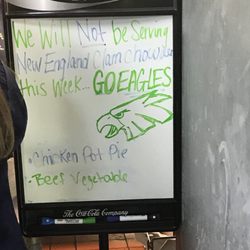 We Will Not be Serving
New England Clam Chowder
this Week... GO EAGLES
• Chicken Pot Pie
• Beef Vegetable
The Coca-Cola Company